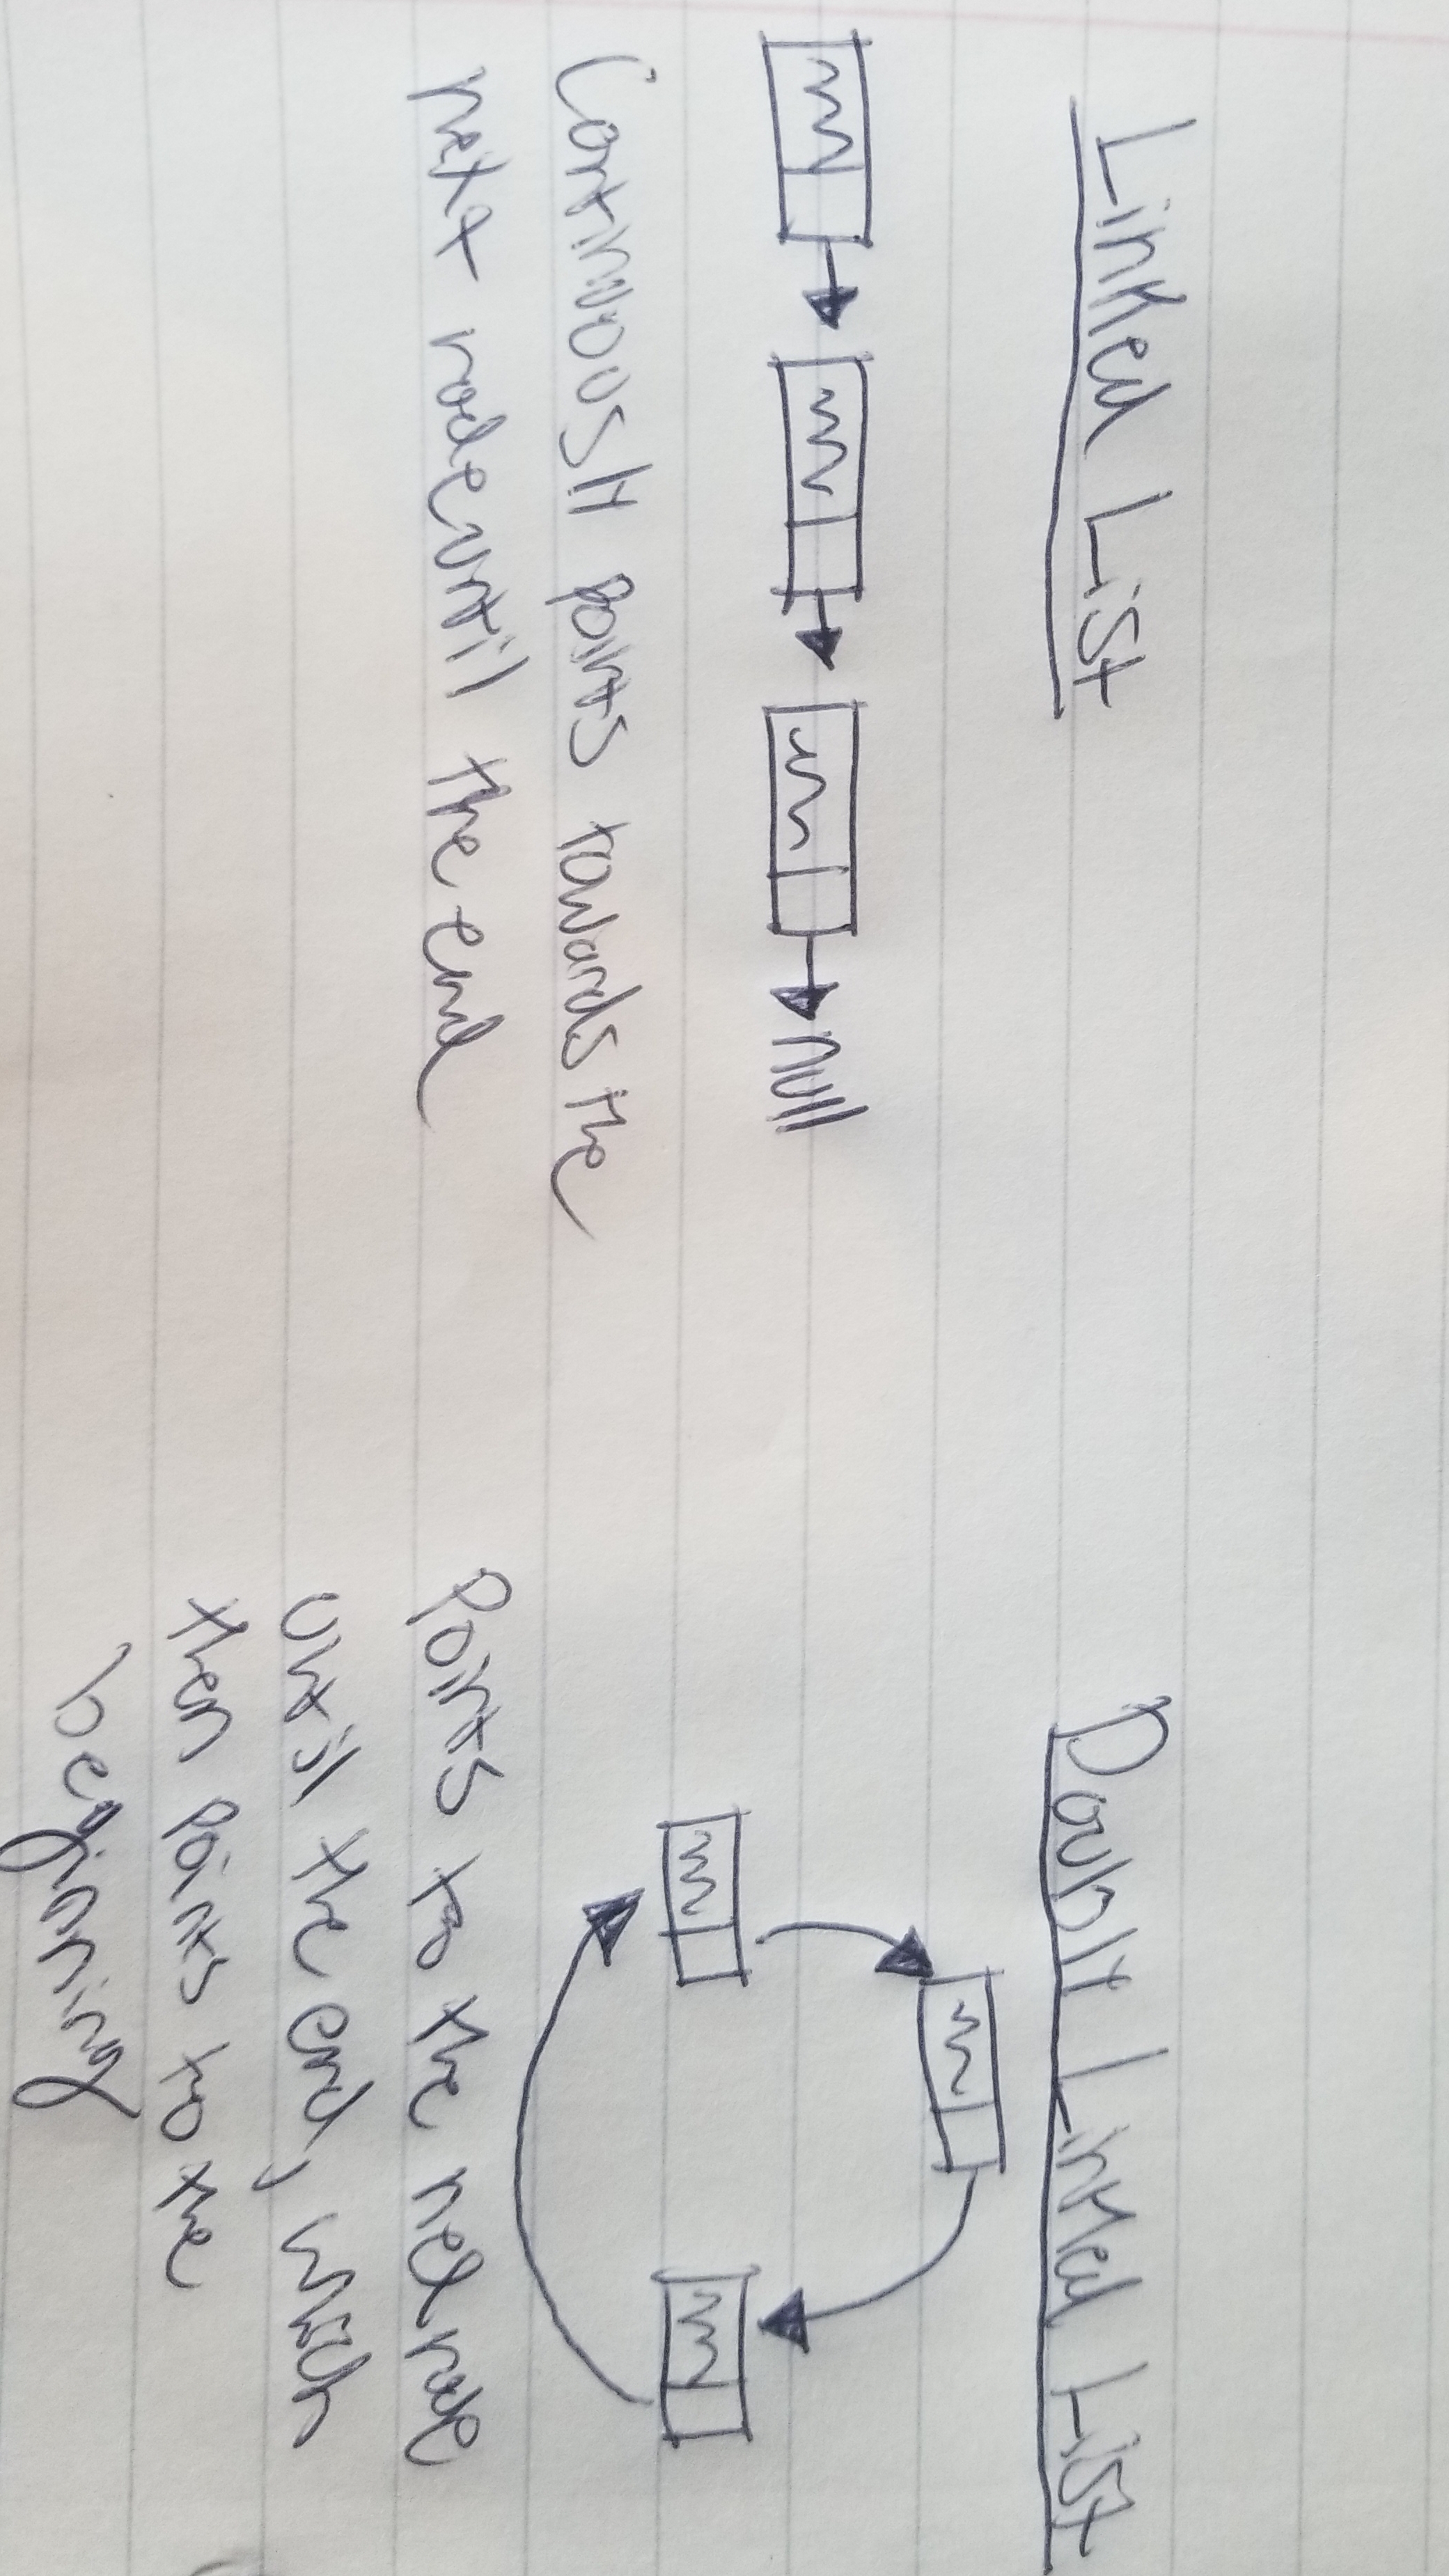 Linked List
null
Continuously points towards the
next node until the end
Doubly Linked List
Points to the nex node
until the end, which
then points to the
beginning